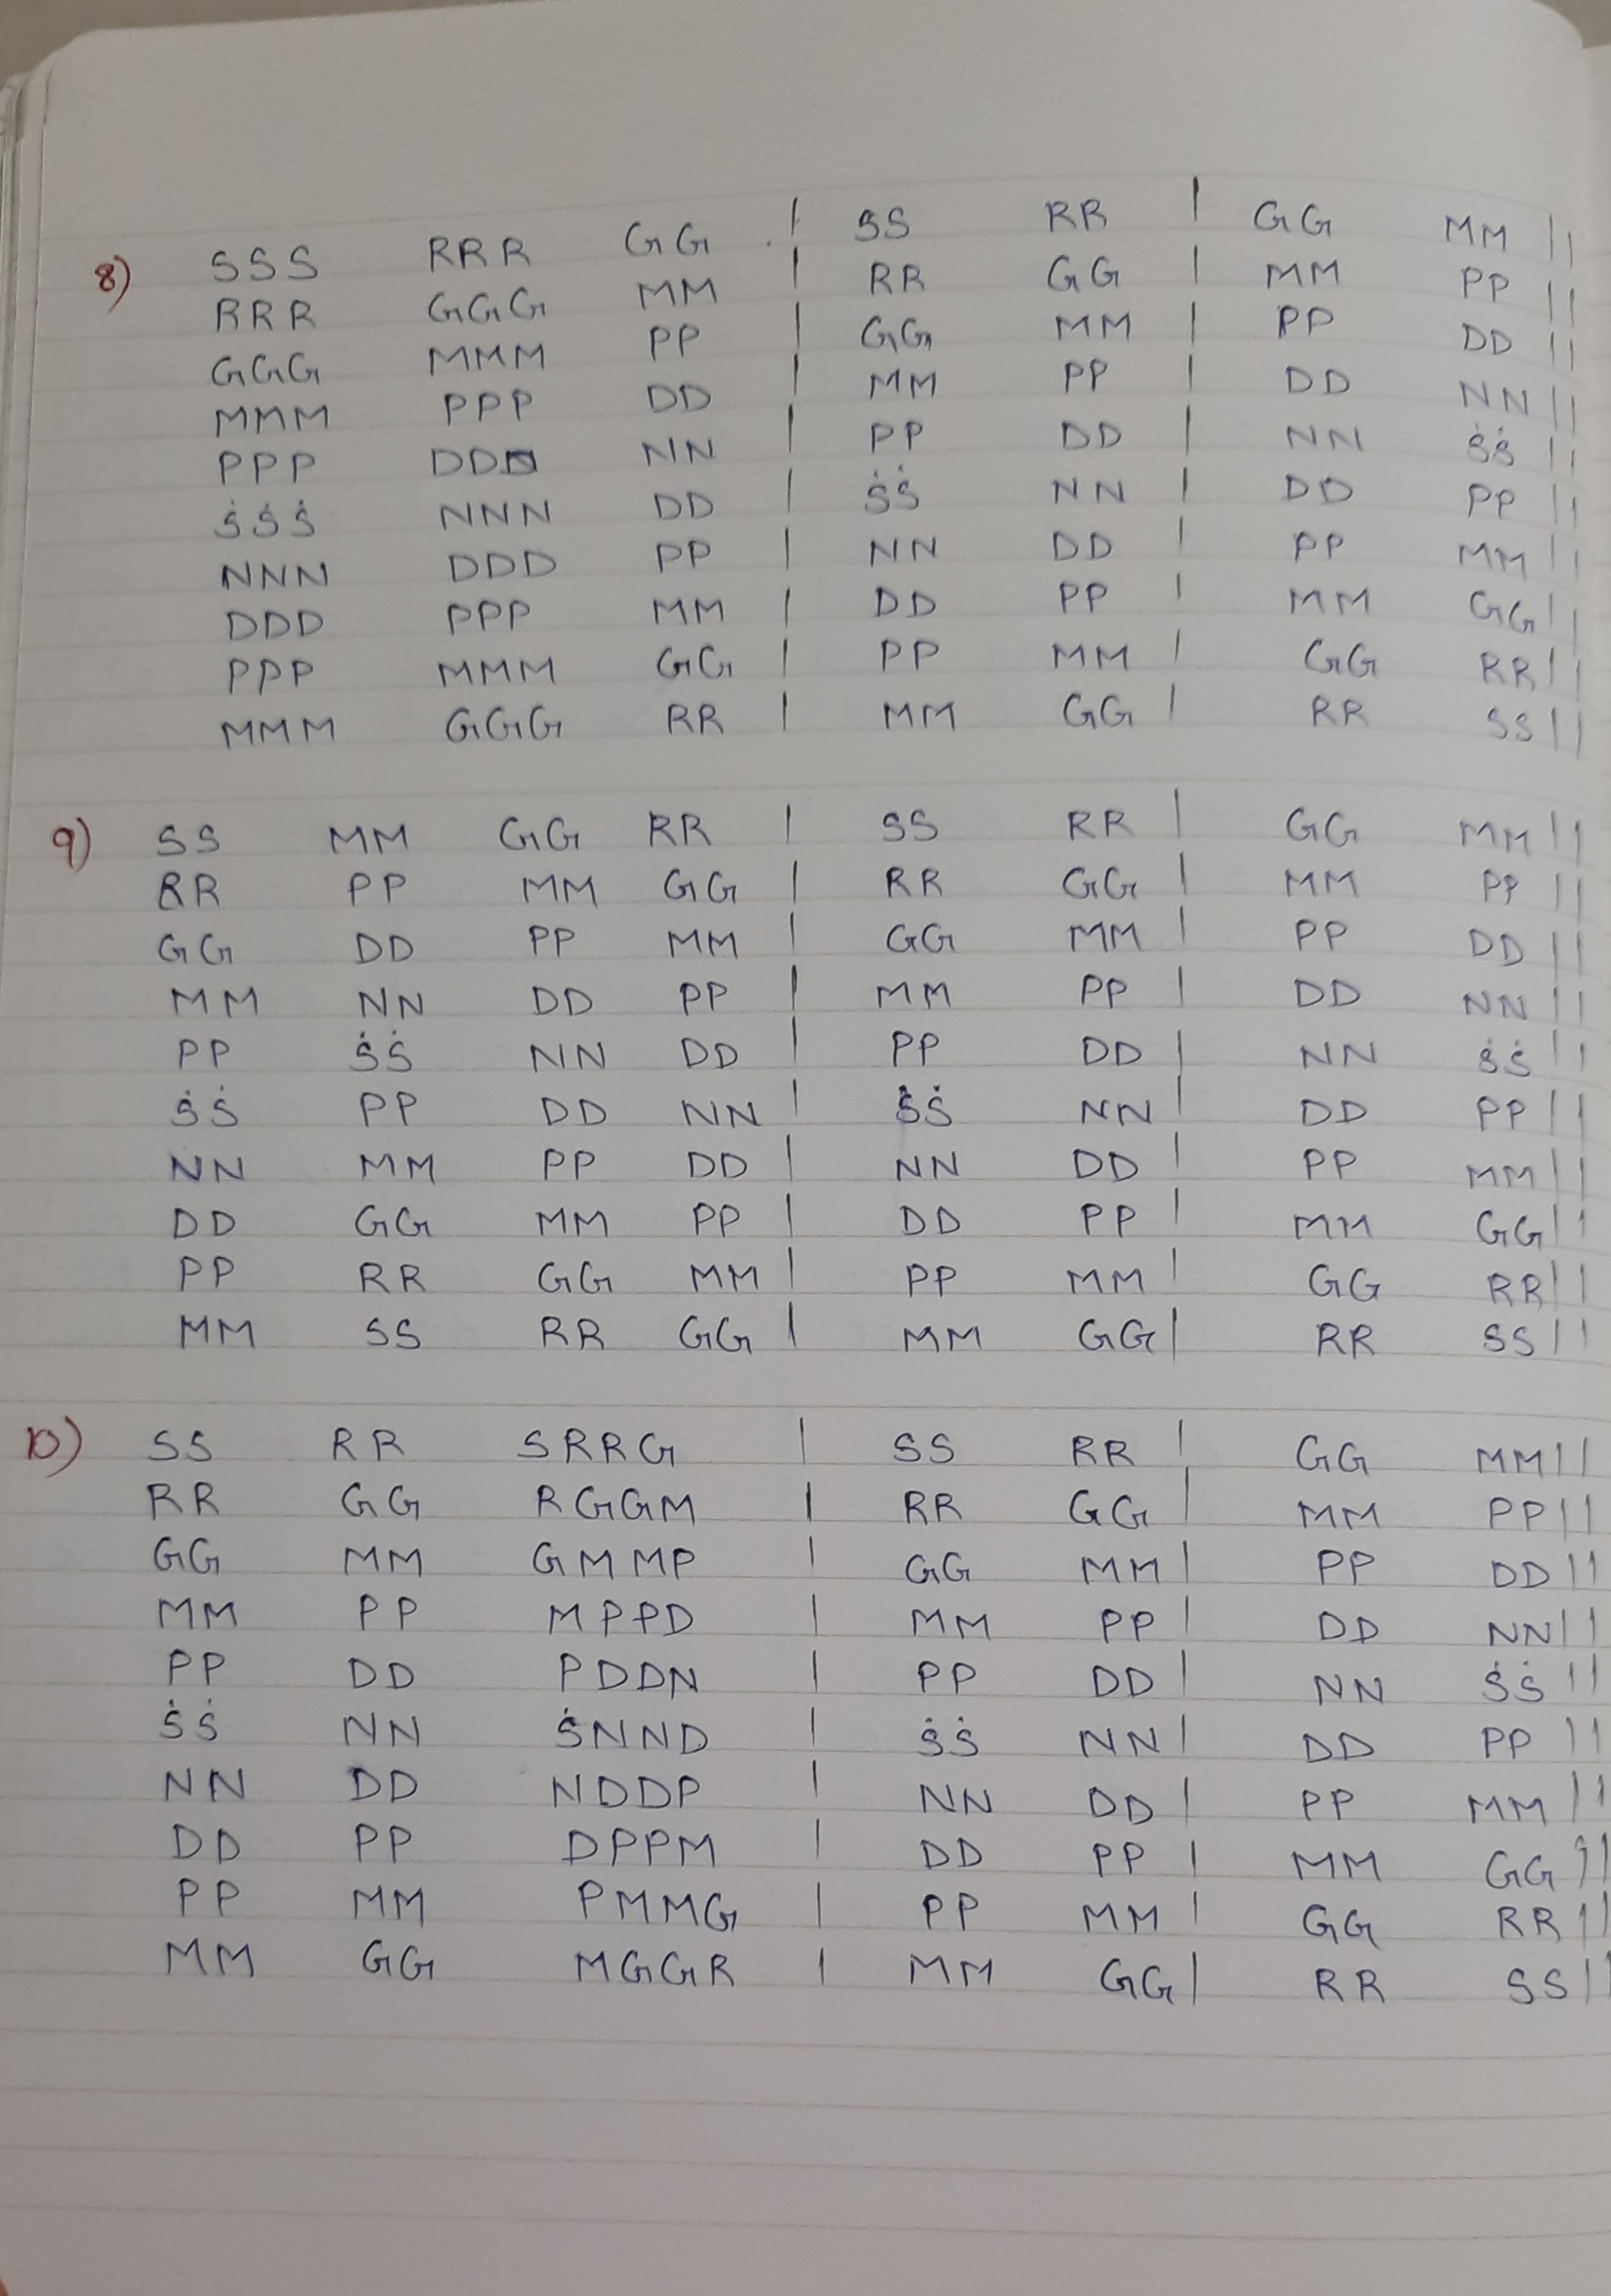 8) SSS RRR GG | SS RR | GG MM ||
RRR GGG MM | RR GG | MM PP ||
GGG MMM PP | GG MM | PP DD ||
MMM PPP DD | MM PP | DD NN ||
PPP DDD NN | PP DD | NN ṠṠ ||
ṠṠṠ NNN DD | ṠṠ NN | DD PP ||
NNN DDD PP | NN DD | PP MM ||
DDD PPP MM | DD PP | MM GG ||
PPP MMM GG | PP MM | GG RR ||
MMM GGG RR | MM GG | RR SS ||
9) SS MM GG RR | SS RR | GG MM ||
RR PP MM GG | RR GG | MM PP ||
GG DD PP MM | GG MM | PP DD ||
MM NN DD PP | MM PP | DD NN ||
PP ṠṠ NN DD | PP DD | NN ṠṠ ||
ṠṠ PP DD NN | ṠṠ NN | DD PP ||
NN MM PP DD | NN DD | PP MM ||
DD GG MM PP | DD PP | MM GG ||
PP RR GG MM | PP MM | GG RR ||
MM SS RR GG | MM GG | RR SS ||
10) SS RR SRRG | SS RR | GG MM ||
RR GG RGGM | RR GG | MM PP ||
GG MM GMMP | GG MM | PP DD ||
MM PP MPPD | MM PP | DD NN ||
PP DD PDDN | PP DD | NN ṠṠ ||
ṠṠ NN ṠNND | ṠṠ NN | DD PP ||
NN DD NDDP | NN DD | PP MM ||
DD PP DPPM | DD PP | MM GG ||
PP MM PMMG | PP MM | GG RR ||
MM GG MGGR | MM GG | RR SS ||